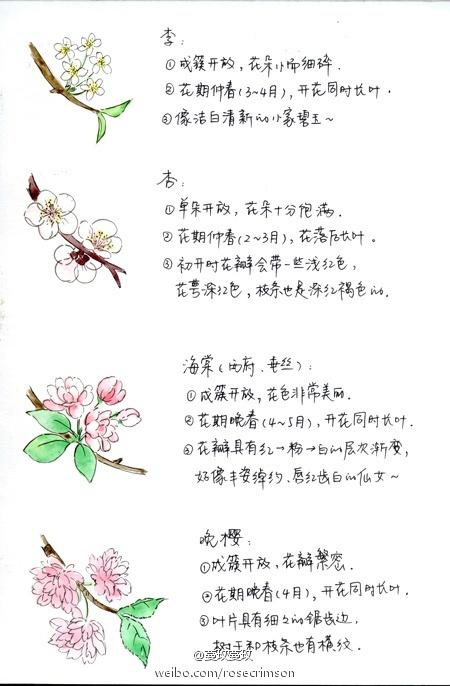 李：
①成簇开放，花朵小而细碎．
②花期仲春(3~4月)，开花同时长叶．
③像洁白清新的小家碧玉~
杏：
①单朵开放，花朵十分饱满．
②花期仲春(2~3月)，花落后长叶。
③初开时花瓣会带一些浅红色，
花萼深红色，枝条也是深红褐色的．
海棠(西府、垂丝)：
①成簇开放，花色非常美丽．
②花期晚春(4~5月)，开花同时长叶．
③花瓣具有红→粉→白的层次渐变，
好像丰姿绰约、唇红齿白的仙女~
晚樱：
①成簇开放，花瓣繁密．
②花期晚春(4月)，开花同时长叶．
③叶片具有细细的锯齿边，
树干和枝条也有横纹．
@蔓玫蔓玫
weibo.com/rosecrimson